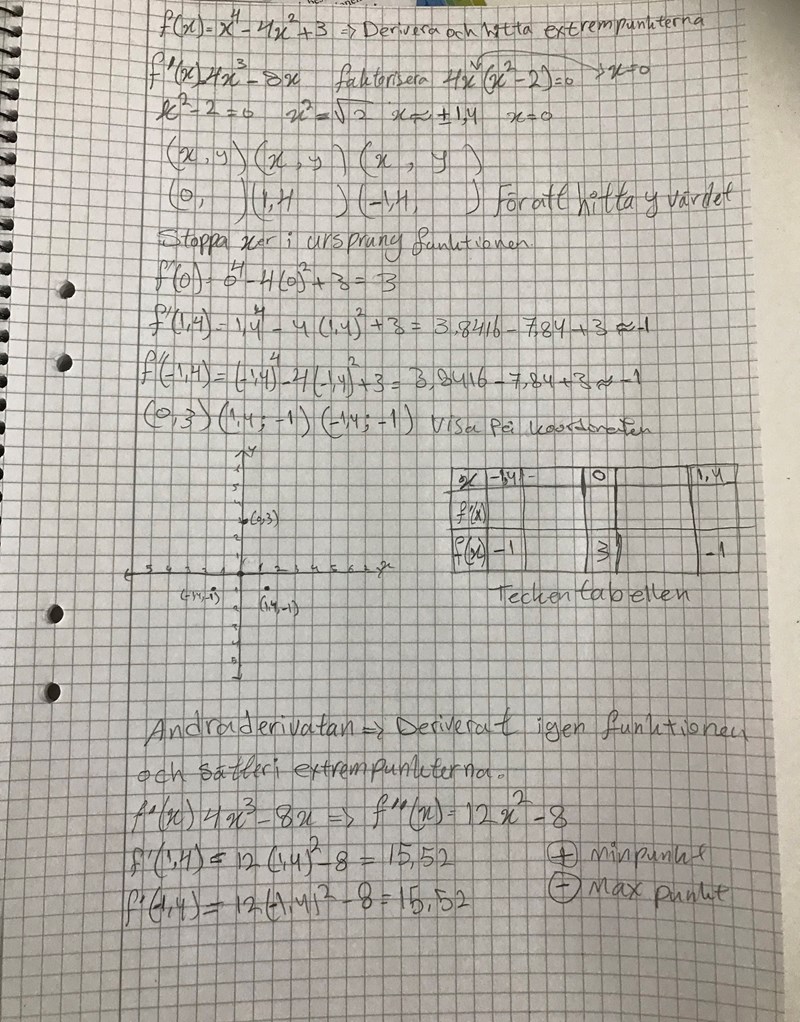 f(x)=x⁴-4x²+3 => Derivera och hitta extrempunkterna
f'(x) 4x³-8x faktorisera 4x(x²-2)=0 → x=0
x²-2=0 x²=√2 x≈±1,4 x=0
(x,y) (x,y) (x,y)
(0, ) (1,4 ) (-1,4, ) För att hitta y värdet
Stoppa xer i ursprung funktionen
f'(0)=0⁴-4(0)²+3=3
f'(1,4)=1,4⁴-4(1,4)²+3=3,8416-7,84+3≈-1
f'(-1,4)=(-1,4)⁴-4(-1,4)²+3=3,8416-7,84+3≈-1
(0,3) (1,4;-1) (-1,4;-1) Visa på koordinaten
y
(0,3)
x
(-1,4,-1) (1,4,-1)
x -1,4 - 0 1,4
f'(x)
f(x) -1 3 -1
Teckentabellen
Andraderivatan => Deriverat igen funktionen
och sätter i extrempunkterna.
f'(x) 4x³-8x => f''(x)=12x²-8
f'(1,4)=12(1,4)²-8=15,52 ⊕ minpunkt
f'(-1,4)=12(-1,4)²-8=15,52 ⊖ Max punkt